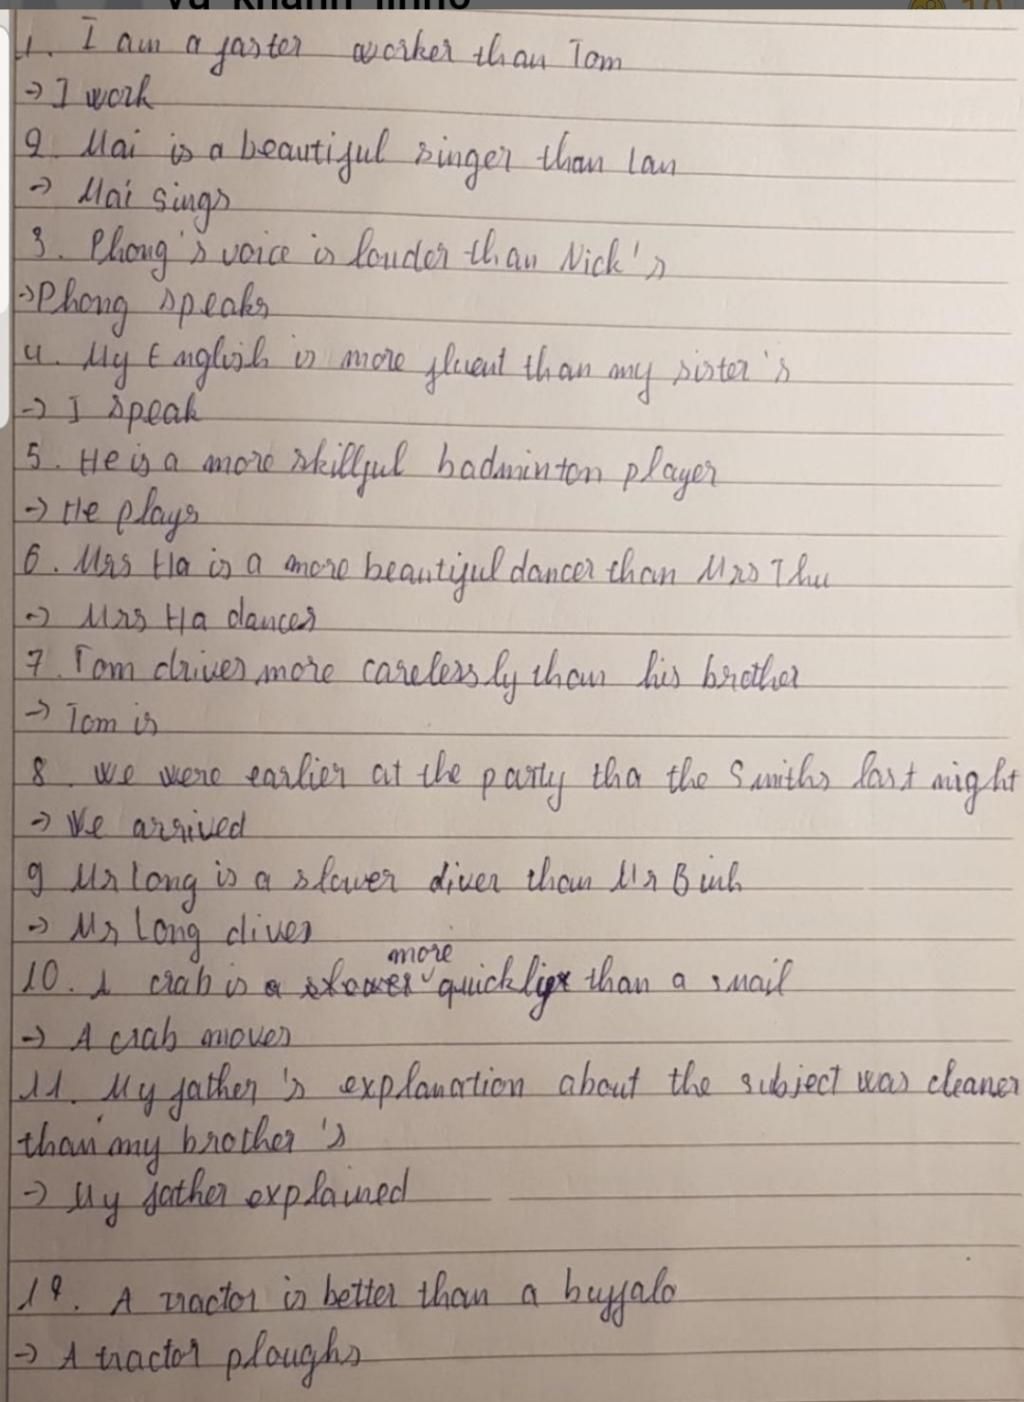 1. I am a faster worker than Tom
→ I work
2. Mai is a beautiful singer than Lan
→ Mai sings
3. Phong's voice is louder than Nick's
→ Phong speaks
4. My English is more fluent than my sister's
→ I speak
5. He is a more skillful badminton player
→ He plays
6. Mrs Ha is a more beautiful dancer than Mrs Thu
→ Mrs Ha dances
7. Tom drives more carelessly than his brother
→ Tom is
8. We were earlier at the party tha the Smiths last night
→ We arrived
9 Mr Long is a slower diver than Mr Binh
→ Mr Long dives
10. A crab is more quickly than a snail
→ A crab moves
11. My father's explanation about the subject was cleaner
than my brother's
→ My father explained
12. A tractor is better than a buffalo
→ A tractor ploughs